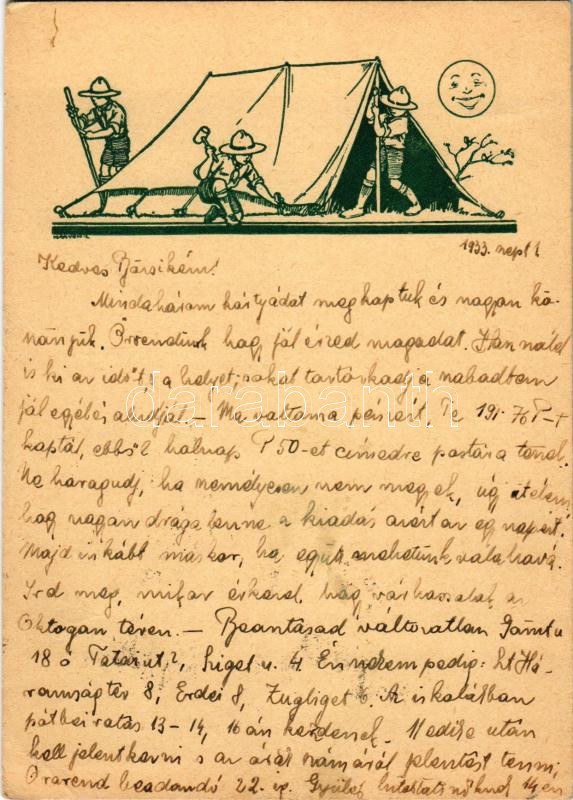 1933. sept 1.
Kedves Bársikám!
Mindahárom kártyádat megkaptuk és nagyon kö-
nönjük. Örvendünk hogy jól érzed magadat. Használd
is ki az időt, a helyet, sokat tartózkodj a szabadban
jól egyél és aludjál. – Ma voltam a pénzért. Te 191·70 P-t
kaptál, ebből holnap P 50-et címedre postára teszek.
Ne haragudj, ha személyesen nem megyek, úgy ítélem
hogy nagyon drága lenne a kiadás azért az egy napért.
Majd inkább máskor, ha együtt mehetünk valahová.
Írd meg, mikor érkezel, hogy várhassalak az
Oktogon téren. – Beosztásod változatlan
18 ó Tatai ut 2, Sziget u. 4. Enyém pedig: Szt Há-
romság tér 8, Erdei 8, Zugliget 6. Az iskolában
pótbeiratás 13–14, 16 án kezdenek. Medike után
kell jelentkezni s az órák számáról jelentést tenni,
Órarend beadandó 22. ig. Gyűlés
darabanth